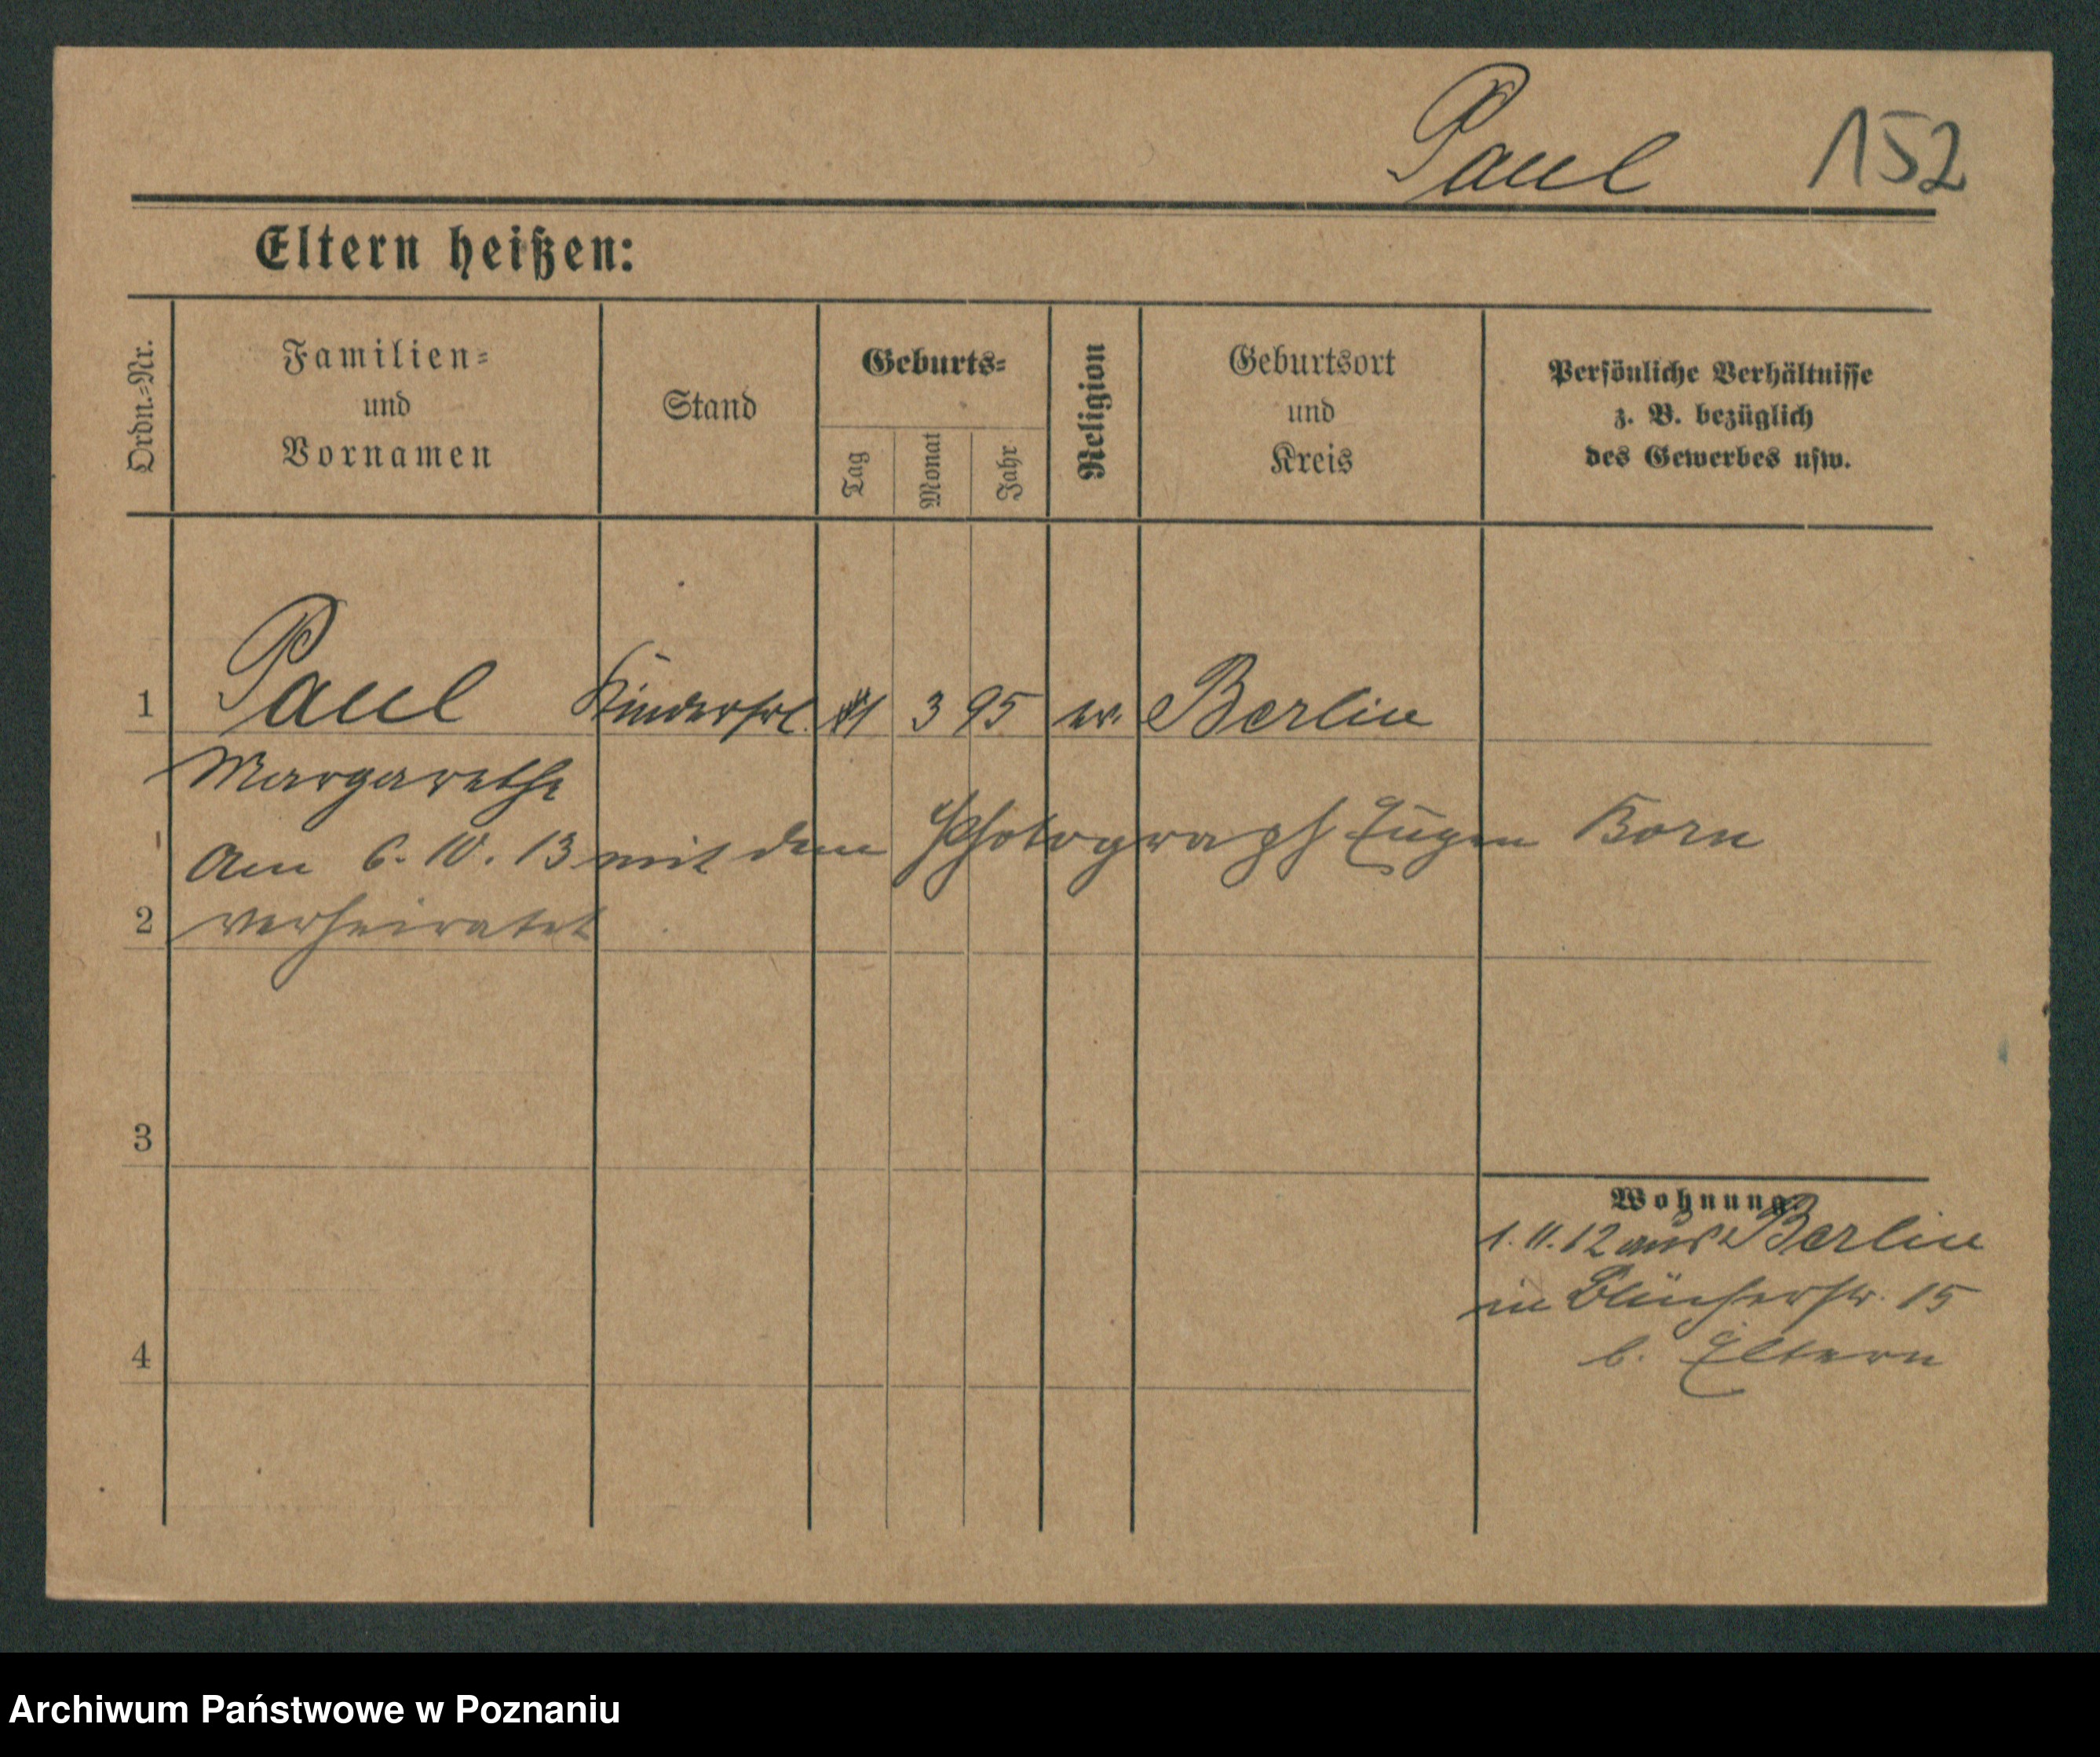 Paul 152
Eltern heißen:
Ordn.-Nr.
Familien-
und
Vornamen
Stand
Geburts-
Tag
Monat
Jahr
Religion
Geburtsort
und
Kreis
Persönliche Verhältnisse
z. B. bezüglich
des Gewerbes usw.
1 Paul Kinderfrl. 3 95 ev. Berlin
Margarethe
Am 6. 10. 13 mit dem Photograph Eugen Born
2 verheiratet
3
Wohnung
1. 11. 12 aus Berlin
in Blücherstr. 15
4 b. Eltern
Archiwum Państwowe w Poznaniu